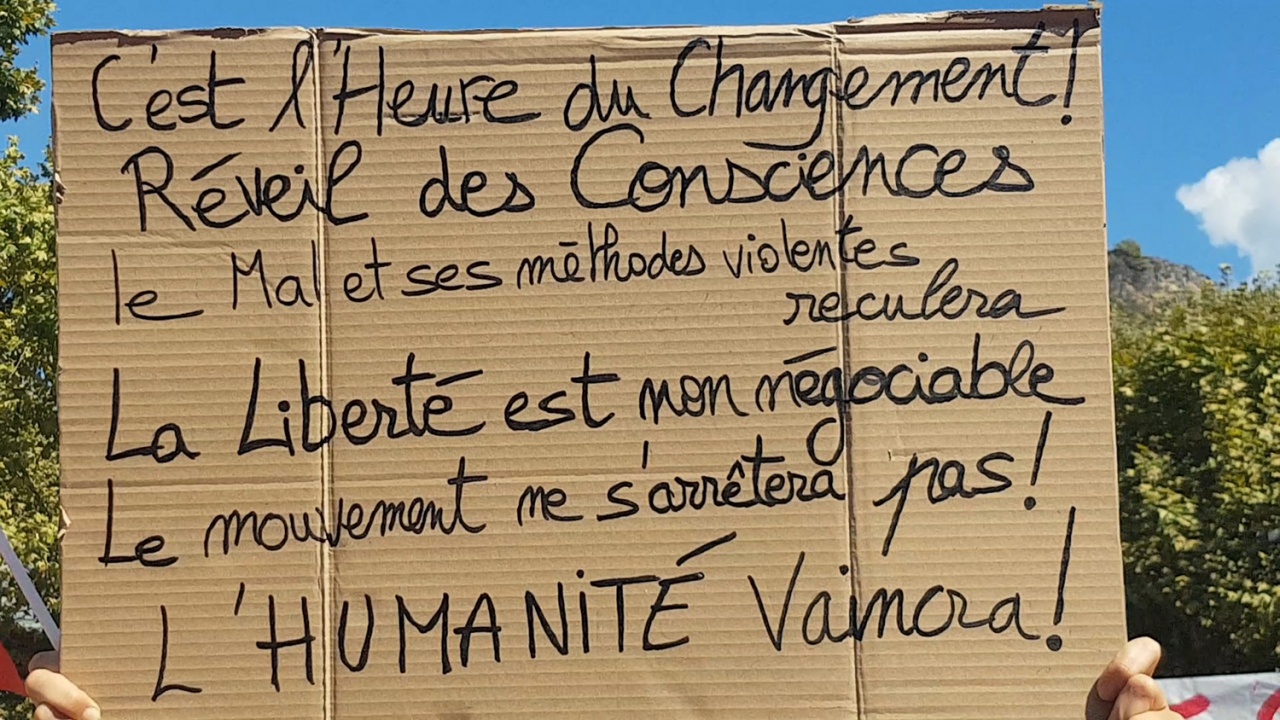 C'est l'Heure du Changement!
Réveil des Consciences
le Mal et ses méthodes violentes
reculera
La Liberté est non négociable
Le mouvement ne s'arrêtera pas!
L'HUMANiTÉ Vaincra!